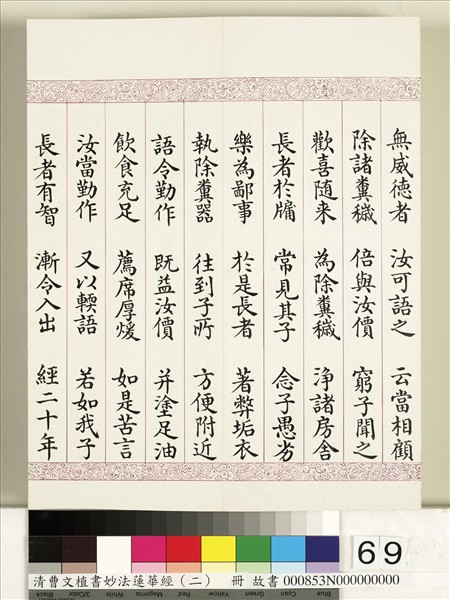 無威德者　汝可語之　云當相顧
除諸糞穢　倍與汝價　窮子聞之
歡喜随来　為除糞穢　淨諸房舍
長者於牖　常見其子　念子愚劣
樂為鄙事　於是長者　著弊垢衣
執除糞器　往到子所　方便附近
語令勤作　既益汝價　并塗足油
飲食充足　薦席厚煖　如是苦言
汝當勤作　又以輭語　若如我子
長者有智　漸令入出　經二十年
69
清曹文植書妙法蓮華經（二）　冊 故書 000853N000000000
Blue Cyan Green Yellow Red Magenta White 3/Color Black